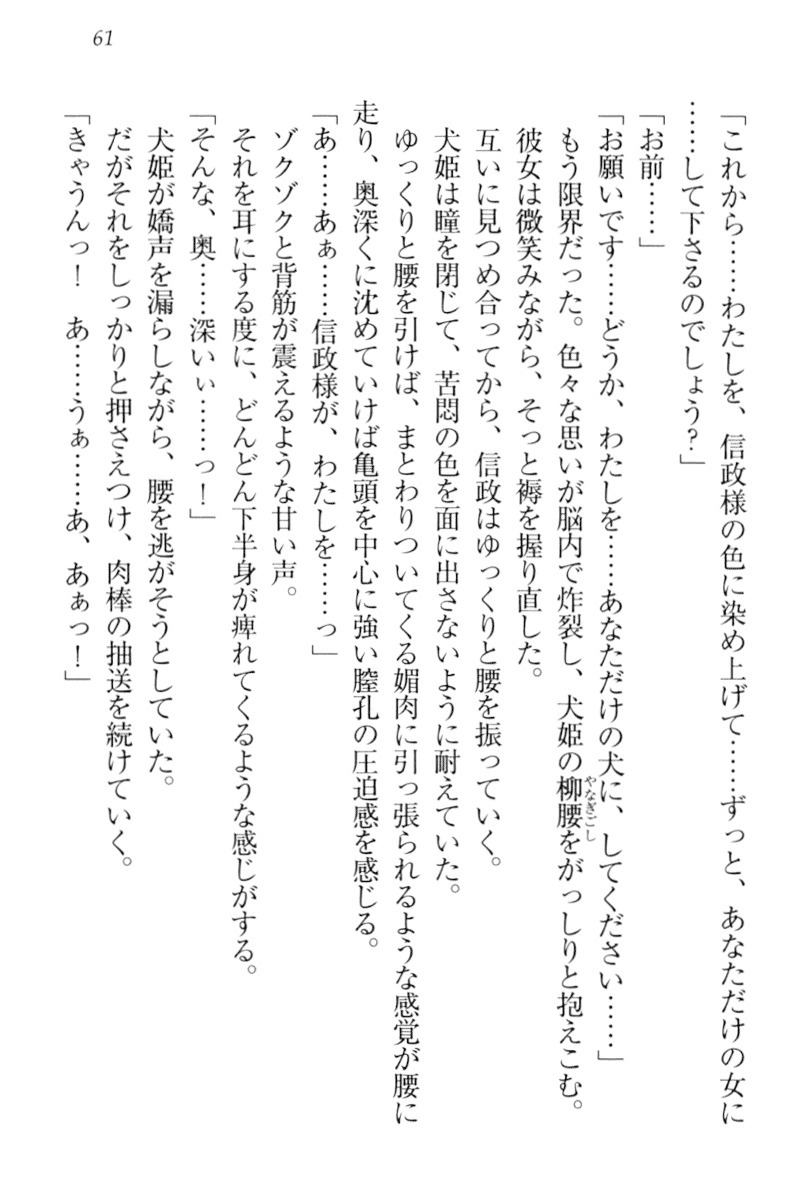 61
「これから……わたしを、信政様の色に染め上げて……ずっと、あなただけの女に
……して下さるのでしょう？」
「お前……」
「お願いです……どうか、わたしを……あなただけの犬に、してください……」
もう限界だった。色々な思いが脳内で炸裂し、犬姫の柳腰をがっしりと抱えこむ。
やなぎごし
彼女は微笑みながら、そっと褥を握り直した。
互いに見つめ合ってから、信政はゆっくりと腰を振っていく。
犬姫は瞳を閉じて、苦悶の色を面に出さないように耐えていた。
ゆっくりと腰を引けば、まとわりついてくる媚肉に引っ張られるような感覚が腰に
走り、奥深くに沈めていけば亀頭を中心に強い膣孔の圧迫感を感じる。
「あ……あぁ……信政様が、わたしを……っ」
ゾクゾクと背筋が震えるような甘い声。
それを耳にする度に、どんどん下半身が痺れてくるような感じがする。
「そんな、奥……深いぃ……っ！」
犬姫が嬌声を漏らしながら、腰を逃がそうとしていた。
だがそれをしっかりと押さえつけ、肉棒の抽送を続けていく。
「きゃうんっ！　あ……うぁ……あ、あぁっ！」